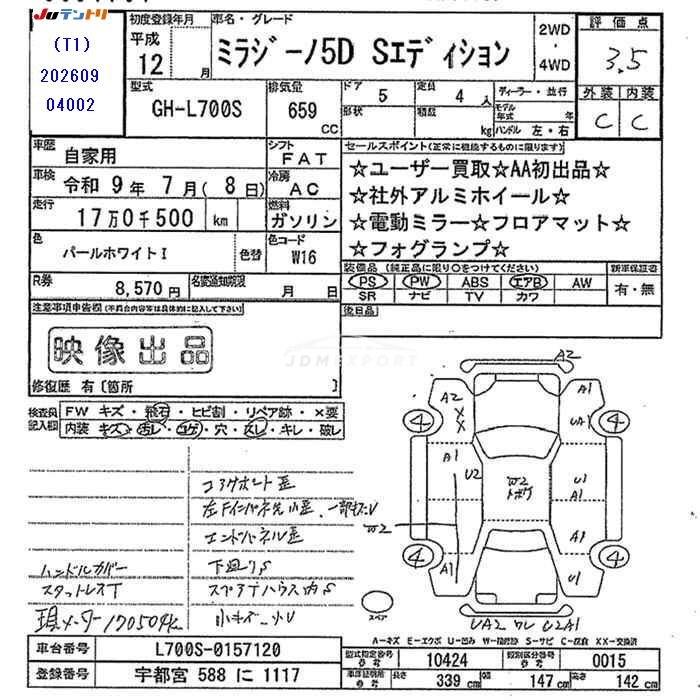 JUテントリ
(T1)
202609
04002
初度登録年月
平成
12 月
車名・グレード
ミラジーノ5D Sエディション
2WD
・
4WD
評価点
3.5
外装 内装
C C
型式
GH-L700S
排気量
659
CC
ドア 5
形状
定員 4 人
積載 kg
ディーラー・並行
モデル年式 年
ハンドル 左・右
車歴
自家用
シフト
FAT
車検
令和 9年 7月( 8日)
冷房
AC
走行
17万0千500 km
燃料
ガソリン
色
パールホワイトI
色替
色コード
W16
R券
8,570円
名変通知期限
月 日
セールスポイント(正常に機能するものに限ります)
☆ユーザー買取☆AA初出品☆
☆社外アルミホイール☆
☆電動ミラー☆フロアマット☆
☆フォグランプ☆
装備品(純正品に限り○をつけてください)
PS PW ABS エアB AW
SR ナビ TV カワ
新車保証書
有・無
後日品
注意事項申告欄(不具合内容等は具体的に記入して下さい)
映像出品
修復歴 有〔箇所 〕
検査員記入欄
FW キズ・飛石・ヒビ割・リペア跡・×要
内装 キズ・汚れ・コゲ・穴・スレ・キレ・破レ
コアサポート歪
左Fインパネ先小歪、一部サU
エンドパネル歪
下廻りS
ハンドルカバー
スタットレスT
スペアTハウス内S
現メーター170504K
小キズ、小U
A2
A2
XX
A1
UA1
4
4
A1
U2
W2
トボケ
U1
A1
W2
A1
A1
U1
4
4
スペア
UA2 ワレ U2A1
A-キズ E-エクボ U-凹み W-補修跡 S-サビ C-腐食 XX-交換済
車台番号
L700S-0157120
登録番号
宇都宮 588 に 1117
型式指定番号 参考
10424
類別区分番号 参考
0015
車庫証明所 参考
長さ 339 cm
幅 147 cm
高さ 142 cm
JDMEXPORT